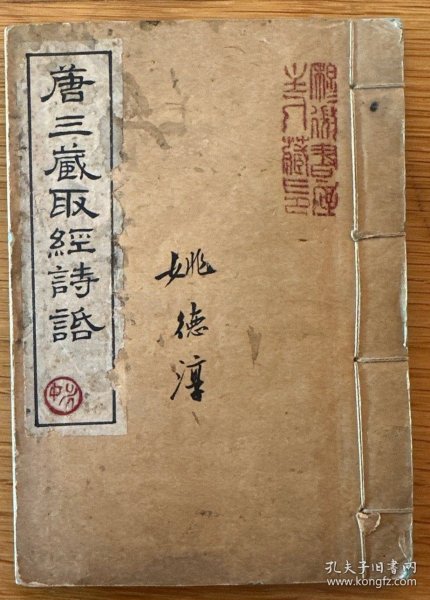 唐三藏取經詩話
姚德淳
孔夫子旧书网
www.kongfz.com